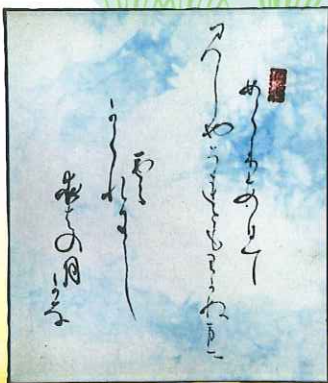 めくりあひて
見しやそれともわかぬまに
雲
かくれにし
夜半の月かな